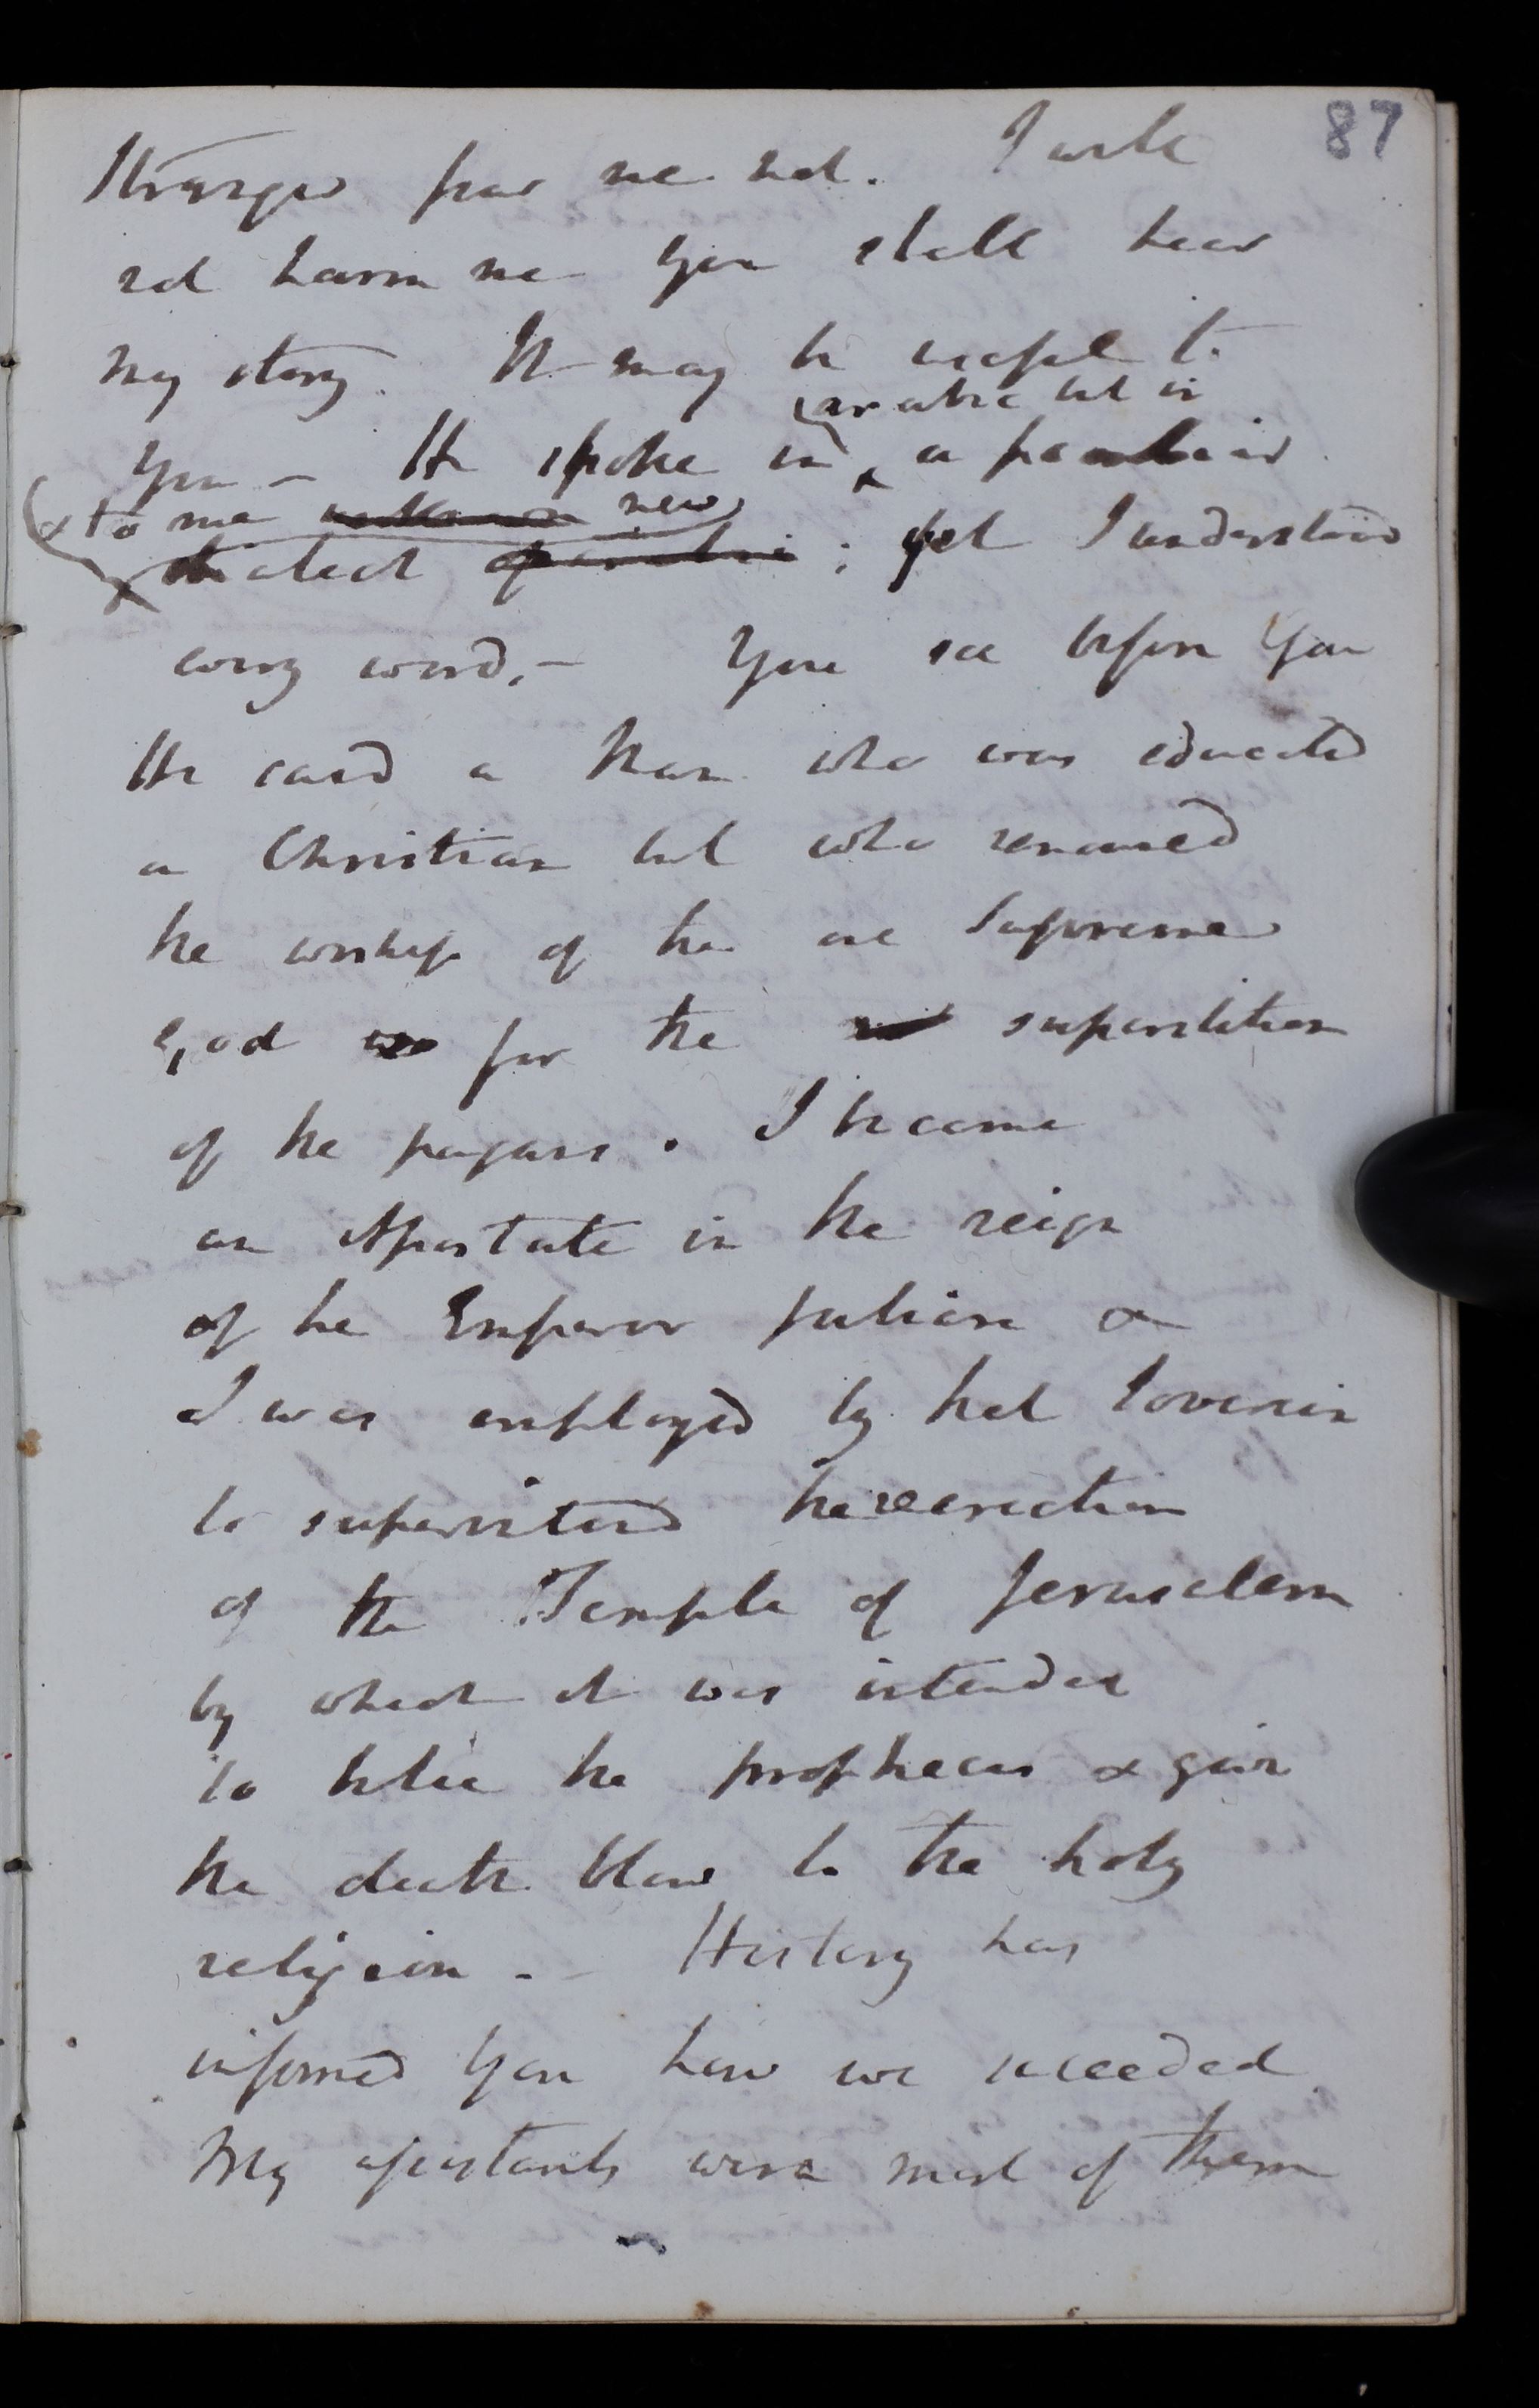 87
Stranger fear me not. I will
not harm me You shall hear
my story. It may be useful to
arabic but in
You – He spoke in a peculiar
& to me new
dialect ; yet I understood
every word. – You see before You
He said a Man who was educated
a Christian but who renounced
the worship of the one Supreme
God for the superstition
of the pagans. I became
an Apostate in the reign
of the Emperor Julian &
I was employed by that Soverein
to superintend the reerection
of the Temple of Jerusalem
by which it was intended
to belie the prophecies & give
the death blow to the holy
religion. – History has
informed You how we succeeded
My assistants were most of them